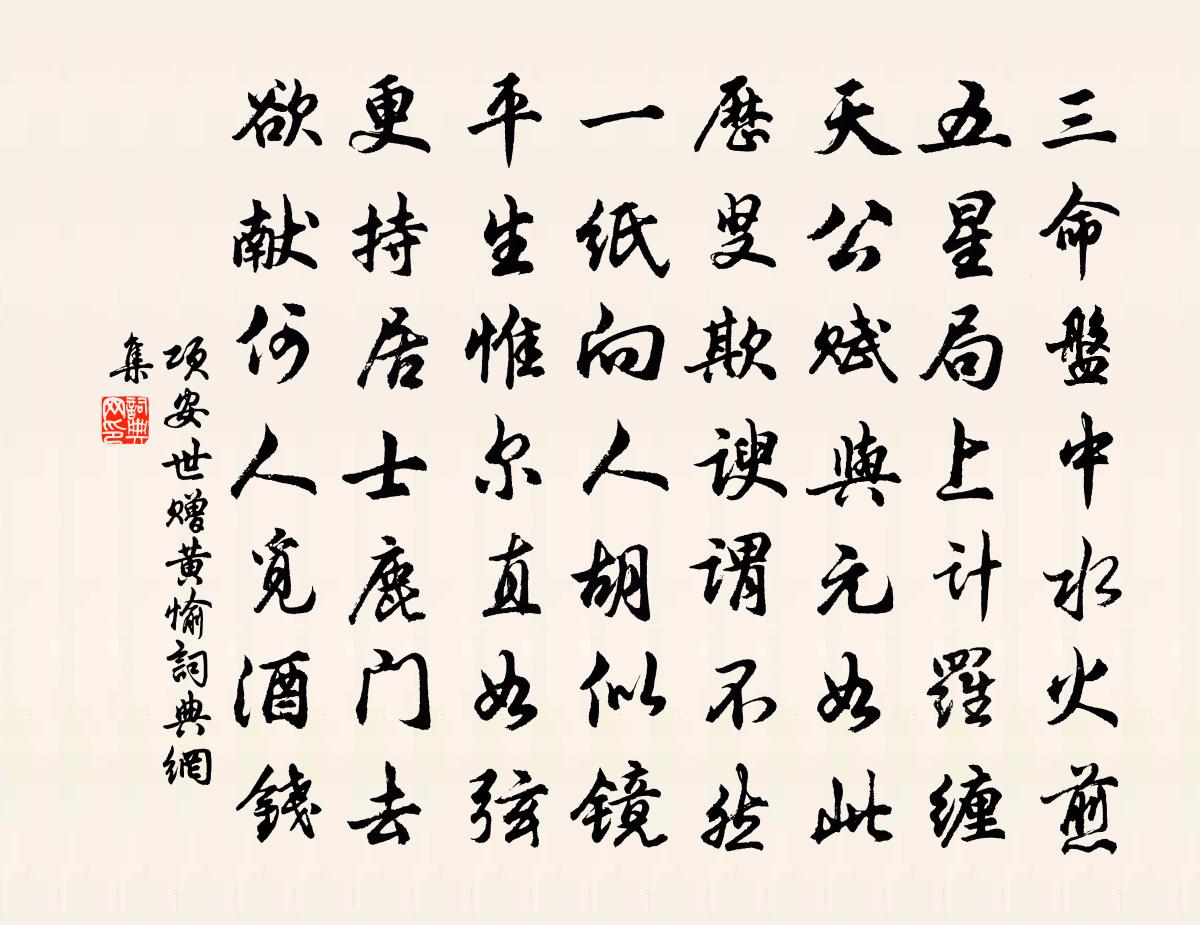 三命盤中水火煎
五星局上计羅缠
天公赋與元如此
歷叟欺謏謂不然
一纸向人胡似镜
平生惟尔直如弦
更持居士鹿门去
欲献何人覓酒錢
项安世赠黄愉詞典網
集
詞典网印